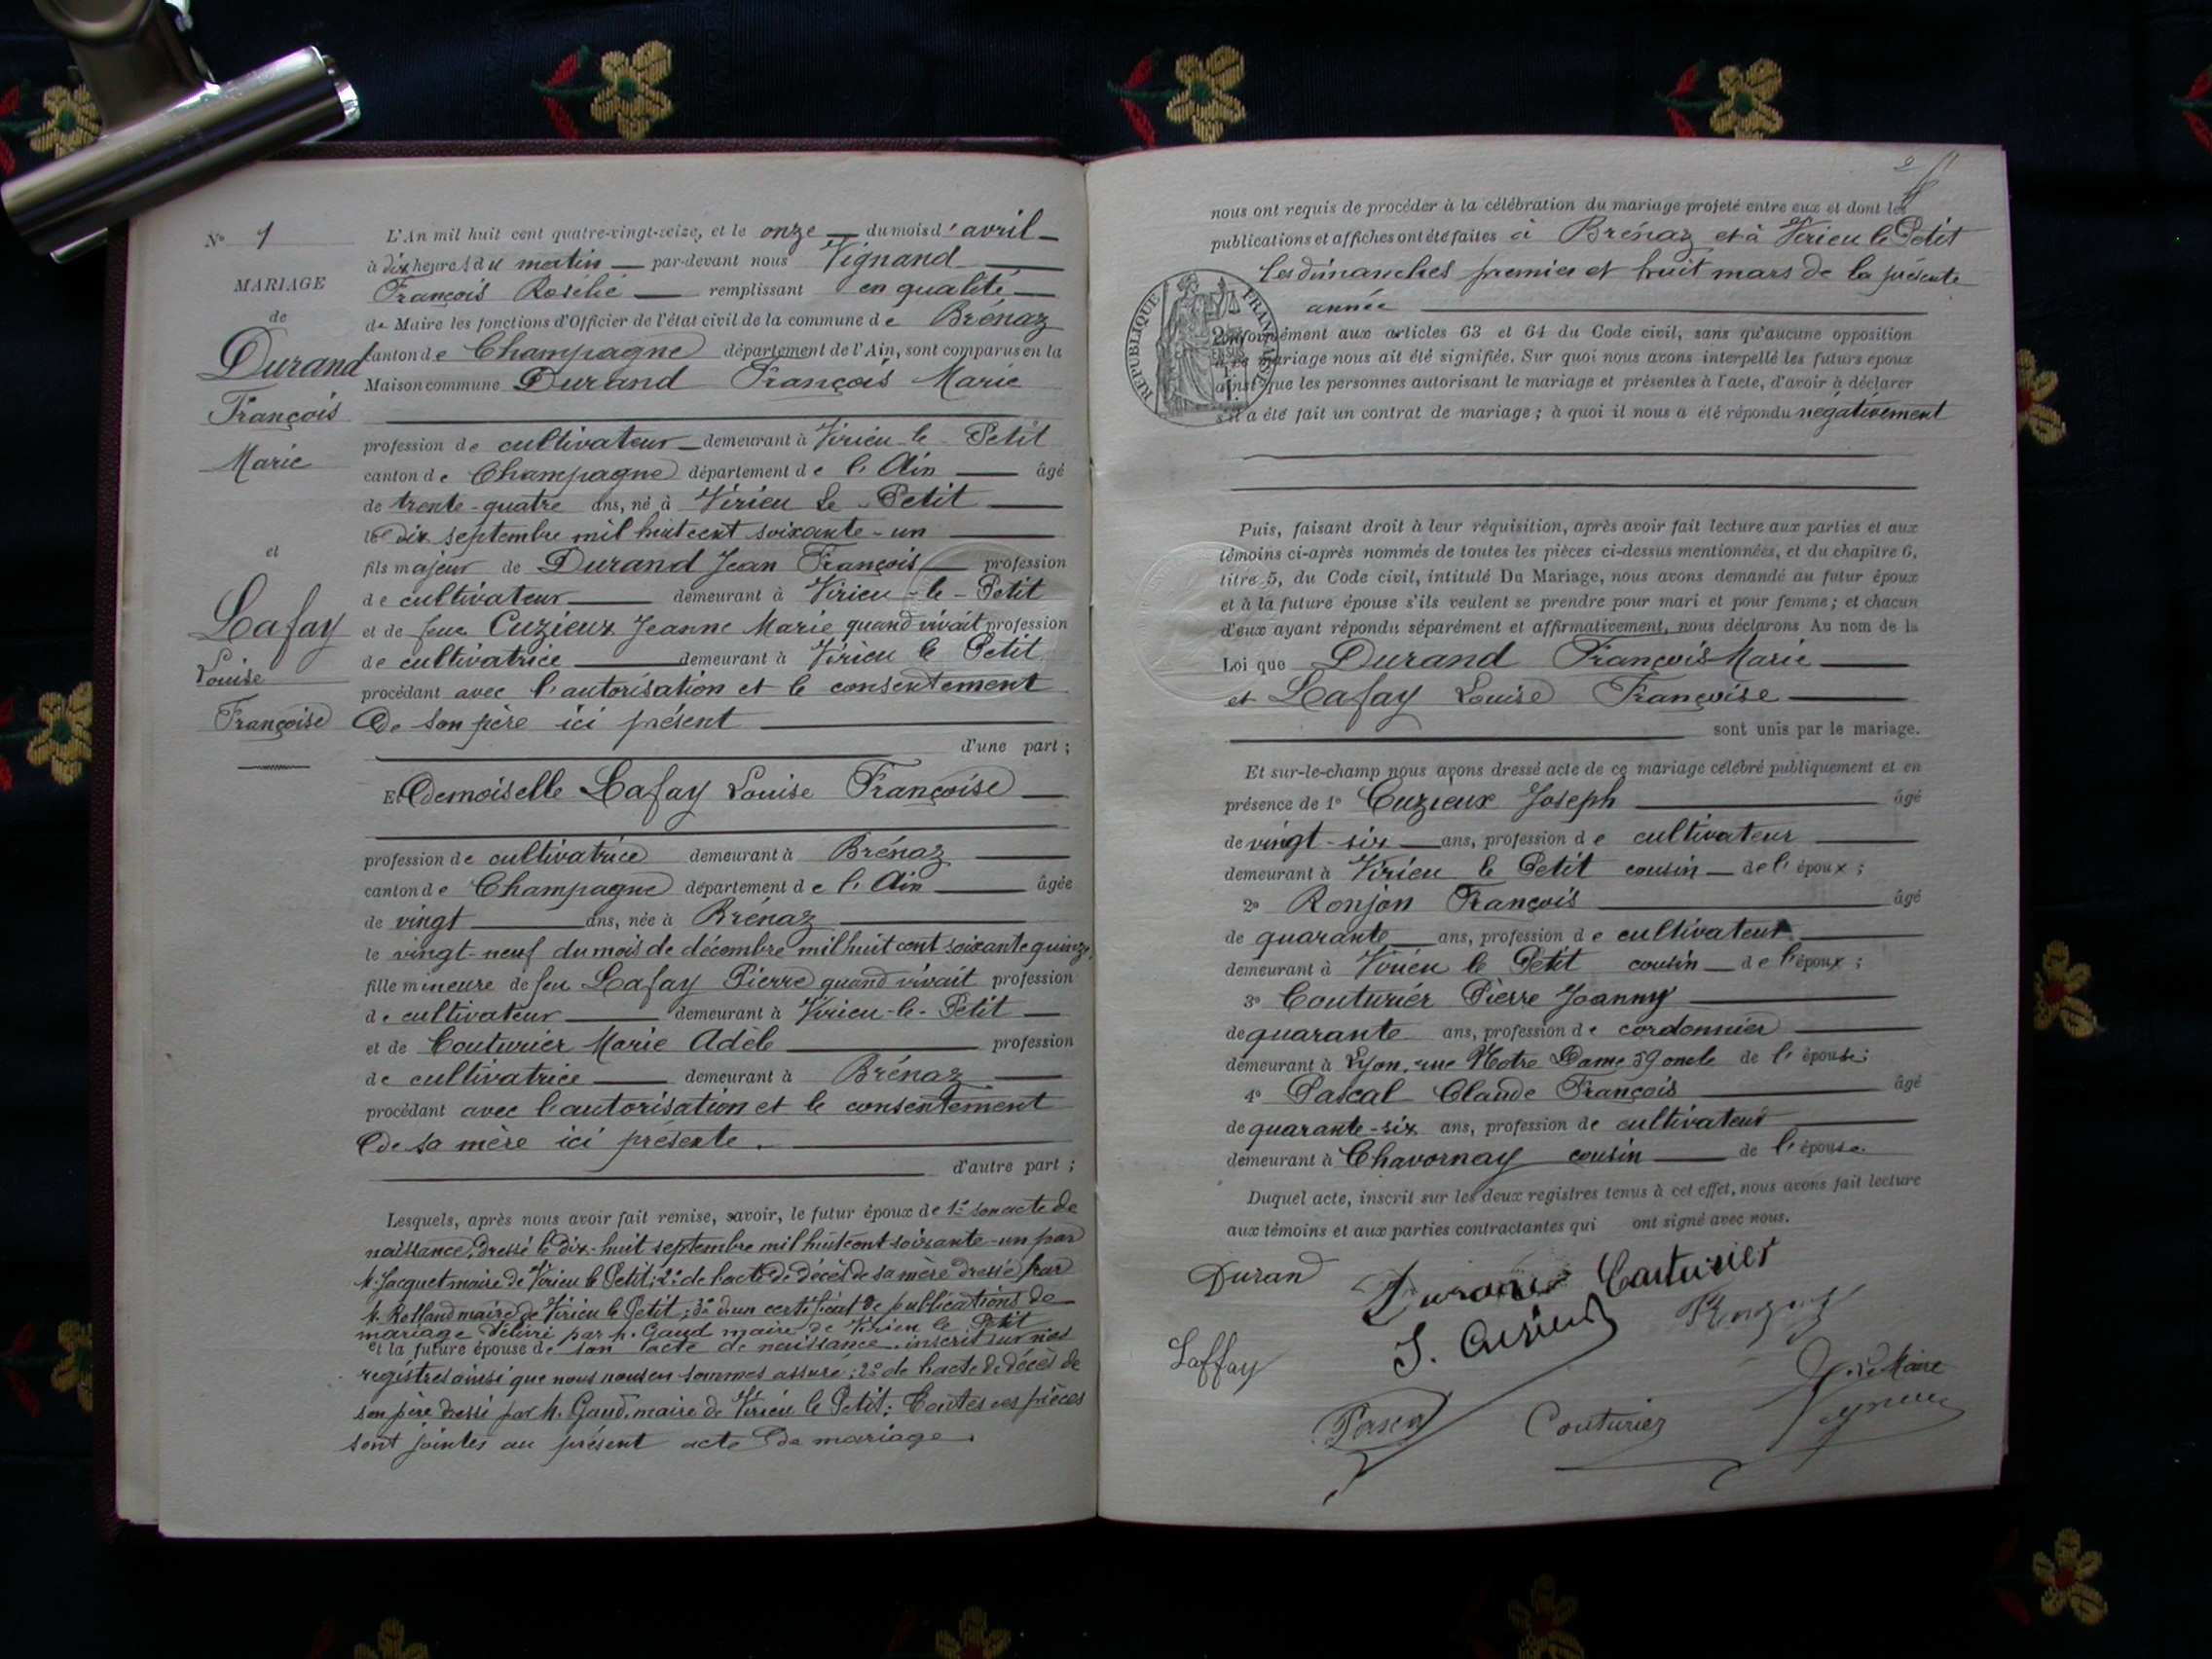 N° 1
MARIAGE
de
Durand
François
Marie
et
Lafay
Louise
Françoise
L'An mil huit cent quatre-vingt-seize, et le onze du mois d'avril
à dix heures du matin par-devant nous Vignand
François Rosélie remplissant en qualité
de Maire les fonctions d'Officier de l'état civil de la commune de Brénaz
canton de Champagne département de l'Ain, sont comparus en la
Maison commune Durand François Marie
profession de cultivateur demeurant à Virieu le Petit
canton de Champagne département de l'Ain âgé
de trente-quatre ans, né à Virieu le Petit
le dix septembre mil huit cent soixante-un
fils majeur de Durand Jean François profession
de cultivateur demeurant à Virieu-le-Petit
et de feue Cuzieux Jeanne Marie quand vivait profession
de cultivatrice demeurant à Virieu le Petit
procédant avec l'autorisation et le consentement
de son père ici présent
d'une part ;
Et Demoiselle Lafay Louise Françoise
profession de cultivatrice demeurant à Brénaz
canton de Champagne département de l'Ain âgée
de vingt ans, née à Brénaz
le vingt-neuf du mois de décembre mil huit cent soixante quinze,
fille mineure de feu Lafay Pierre quand vivait profession
de cultivateur demeurant à Virieu-le-Petit
et de Couturier Marie Adèle profession
de cultivatrice demeurant à Brénaz
procédant avec l'autorisation et le consentement
de sa mère ici présente.
d'autre part ;
Lesquels, après nous avoir fait remise, savoir, le futur époux de 1° son acte de
naissance, dressé le dix-huit septembre mil huit cent soixante-un par
M. Jacquet maire de Virieu le Petit; 2° de l'acte de décès de sa mère dressé par
M. Rolland maire de Virieu le Petit; 3° d'un certificat de publications de
mariage délivré par M. Gaud maire de Virieu le Petit
et la future épouse de son acte de naissance inscrit sur nos
registres ainsi que nous nous en sommes assuré; 2° de l'acte de décès de
son père dressé par M. Gaud, maire de Virieu le Petit; Toutes ces pièces
sont jointes au présent acte de mariage.
2
nous ont requis de procéder à la célébration du mariage projeté entre eux et dont les
publications et affiches ont été faites à Brénaz et à Virieu le Petit
les dimanches premier et huit mars de la présente
année
RÉPUBLIQUE FRANÇAISE
conformément aux articles 63 et 64 du Code civil, sans qu'aucune opposition
à ce mariage nous ait été signifiée. Sur quoi nous avons interpellé les futurs époux
ainsi que les personnes autorisant le mariage et présentes à l'acte, d'avoir à déclarer
s'il a été fait un contrat de mariage ; à quoi il nous a été répondu négativement
Puis, faisant droit à leur réquisition, après avoir fait lecture aux parties et aux
témoins ci-après nommés de toutes les pièces ci-dessus mentionnées, et du chapitre 6,
titre 5, du Code civil, intitulé Du Mariage, nous avons demandé au futur époux
et à la future épouse s'ils veulent se prendre pour mari et pour femme ; et chacun
d'eux ayant répondu séparément et affirmativement, nous déclarons Au nom de la
Loi que Durand François Marie
et Lafay Louise Françoise
sont unis par le mariage.
Et sur-le-champ nous avons dressé acte de ce mariage célébré publiquement et en
présence de 1° Cuzieux Joseph âgé
de vingt-six ans, profession de cultivateur
demeurant à Virieu le Petit cousin de l'époux ;
2° Ronjon François âgé
de quarante ans, profession de cultivateur
demeurant à Virieu le Petit cousin de l'époux ;
3° Couturier Pierre Joanny
de quarante ans, profession de cordonnier
demeurant à Lyon, rue Notre Dame 39 oncle de l'épouse;
4° Pascal Claude François âgé
de quarante-six ans, profession de cultivateur
demeurant à Chavornay cousin de l'épouse.
Duquel acte, inscrit sur les deux registres tenus à cet effet, nous avons fait lecture
aux témoins et aux parties contractantes qui ont signé avec nous.
Durand Durand Couturier
J. Cuzieux Ronjon
Laffay
Le Maire
Pascal Couturier Vignand